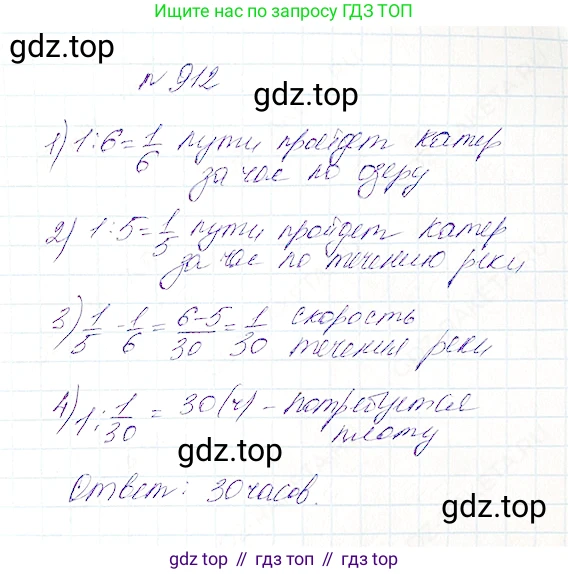 Ищите нас по запросу ГДЗ ТОП
gdz.top
№ 912
gdz.top
1) 1:6=1/6 пути пройдет катер
за час по озеру
2) 1:5=1/5 пути пройдет катер
за час по течению реки
3) 1/5-1/6=(6-5)/30=1/30 скорость
течения реки
4) 1:1/30=30(ч)-потребуется
плоту
gdz.top
Ответ: 30 часов.
gdz.top
gdz.top // гдз топ // гдз.топ